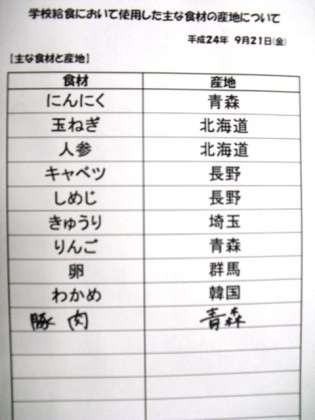 学校給食において使用した主な食材の産地について
平成24年 9月21日(金)
【主な食材と産地】
食材 産地
にんにく 青森
玉ねぎ 北海道
人参 北海道
キャベツ 長野
しめじ 長野
きゅうり 埼玉
りんご 青森
卵 群馬
わかめ 韓国
豚肉 青森